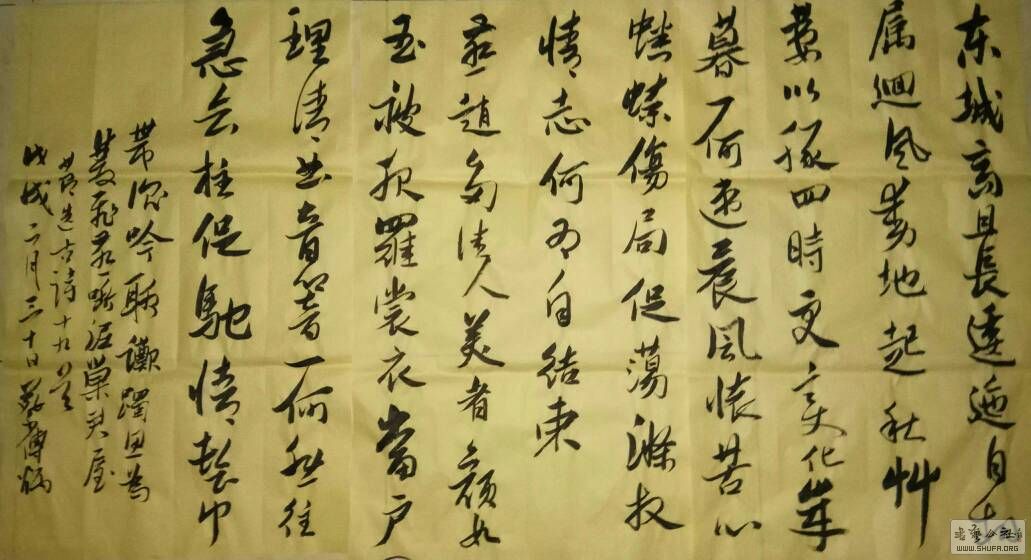 东城高且長逶迤自相
属迴风動地起秋艸
萋以绿四時更变化岁
暮一何速晨风懐苦心
蟋蟀傷局促蕩滌放
情志何为自结束
燕赵多佳人美者颜如
玉被服羅裳衣當户
理清曲音響一何悲弦
急知柱促馳情整巾
带沉吟聊躑躅思为
双飞燕啣泥巢君屋
选古诗十九首
戊戌二月三十日
WWW.SHUFA.ORG